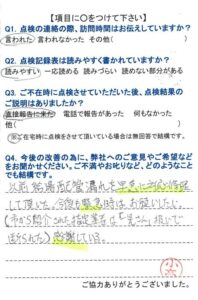 【項目に○をつけて下さい】
Q1. 点検の連絡の際、訪問時間はお伝えしていますか？
言われた 言われなかった その他( )
Q2. 点検記録表は読みやすく書かれていますか？
読みやすい 一応読める 読みづらい 読めない部分がある
Q3. ご不在時に点検させていただいた後、点検結果の
ご説明はありましたか？
直接報告に来た 電話で報告があった 何もなかった
他( )
※ご在宅時に点検をさせて頂いている場合は無回答で結構です。
Q4. 今後の改善の為に、弊社へのご意見やご希望など
をお聞かせください。ご不満やお叱りなど、どのようなこと
でも結構です。
以前給湯配管漏れを早急に
して頂いた。今後も緊急時はお願いしたい。
(市から紹介された指定業者は
断られた) 感謝している。
ご協力ありがとうございました。